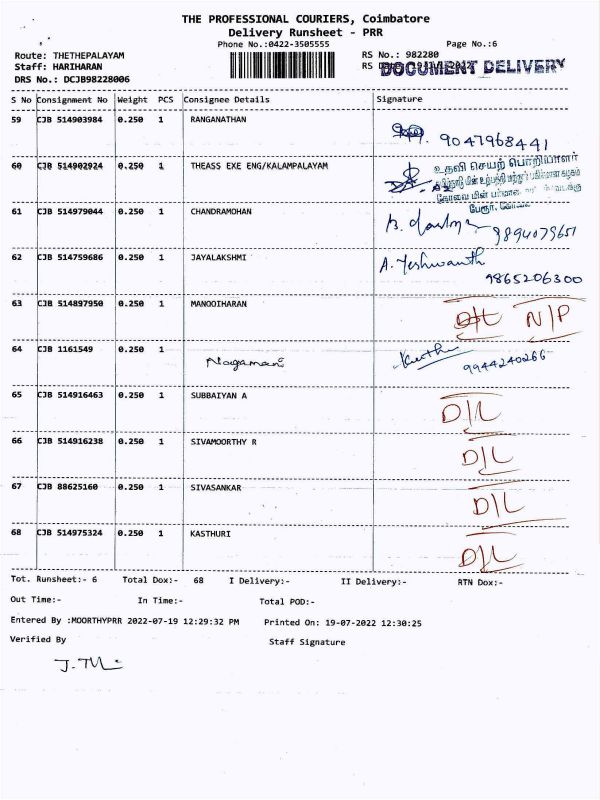 THE PROFESSIONAL COURIERS, Coimbatore
Delivery Runsheet - PRR
Phone No.:0422-3505555
Page No.:6
Route: THETHEPALAYAM
RS No.: 982280
Staff: HARIHARAN
RS
DOCUMENT DELIVERY
DRS No.: DCJB98228006
S No Consignment No Weight PCS Consignee Details Signature
59 CJB 514903984 0.250 1 RANGANATHAN
9047968441
60 CJB 514902924 0.250 1 THEASS EXE ENG/KALAMPALAYAM
உதவி செயற் பொறியாளர்
பேரூர்,
61 CJB 514979044 0.250 1 CHANDRAMOHAN
9894079651
62 CJB 514759686 0.250 1 JAYALAKSHMI A. Yeshwanth
9865206300
63 CJB 514897950 0.250 1 MANOOIHARAN D/L N/P
64 CJB 1161549 0.250 1 Nagamani
9944240266
65 CJB 514916463 0.250 1 SUBBAIYAN A D/L
66 CJB 514916238 0.250 1 SIVAMOORTHY R D/L
67 CJB 88625160 0.250 1 SIVASANKAR D/L
68 CJB 514975324 0.250 1 KASTHURI D/L
Tot. Runsheet:- 6 Total Dox:- 68 I Delivery:- II Delivery:- RTN Dox:-
Out Time:- In Time:- Total POD:-
Entered By :MOORTHYPRR 2022-07-19 12:29:32 PM Printed On: 19-07-2022 12:30:25
Verified By Staff Signature